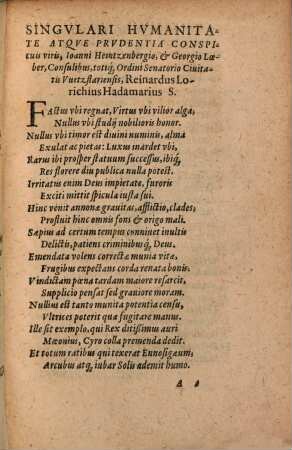 SINGVLARI HVMANITA-
TE ATQVE PRVDENTIA CONSPI-
tuis viris, Ioanni Heintzenbergio, & Georgio Lœ-
ber, Consulibus, totiq́; Ordini Senatorio Ciuita-
tis Vuetzflariensis, Reinardus Lo-
richius Hadamarius S.
FActus vbi regnat, Virtus vbi vilior alga,
Nullus vbi studij nobilioris honor.
Nullus vbi timor est diuini numinis, alma
Exulat ac pietas: Luxus inardet vbi,
Rarus ibi prosper statuum successus, ibiq́;
Res florere diu publica nulla potest.
Irritatus enim Deus impietate, furoris
Exciti mittit spicula iusta sui.
Hinc venit annonæ grauitas, afflictio, clades,
Prostuit hinc omnis fons & origo mali.
Sæpius ad certum tempus conniuet inultis
Delictis, patiens criminibusq́;, Deus.
Emendata volens correctæ munia vitæ,
Frugibus expectans corda renata bonis.
Vindictam pœnæ tardam maiore resarcit,
Supplicio pensat sed grauiore moram.
Nullus est tanto munita potentia censu,
Vltrices poterit quæ fugitare manus.
Ille sit exemplo, qui Rex ditissimus auri
Mæonius, Cyro colla premenda dedit.
Et totum ratibus qui texerat Ennosigæum;
Arcubus atq́, iubar Solis ademit humo.